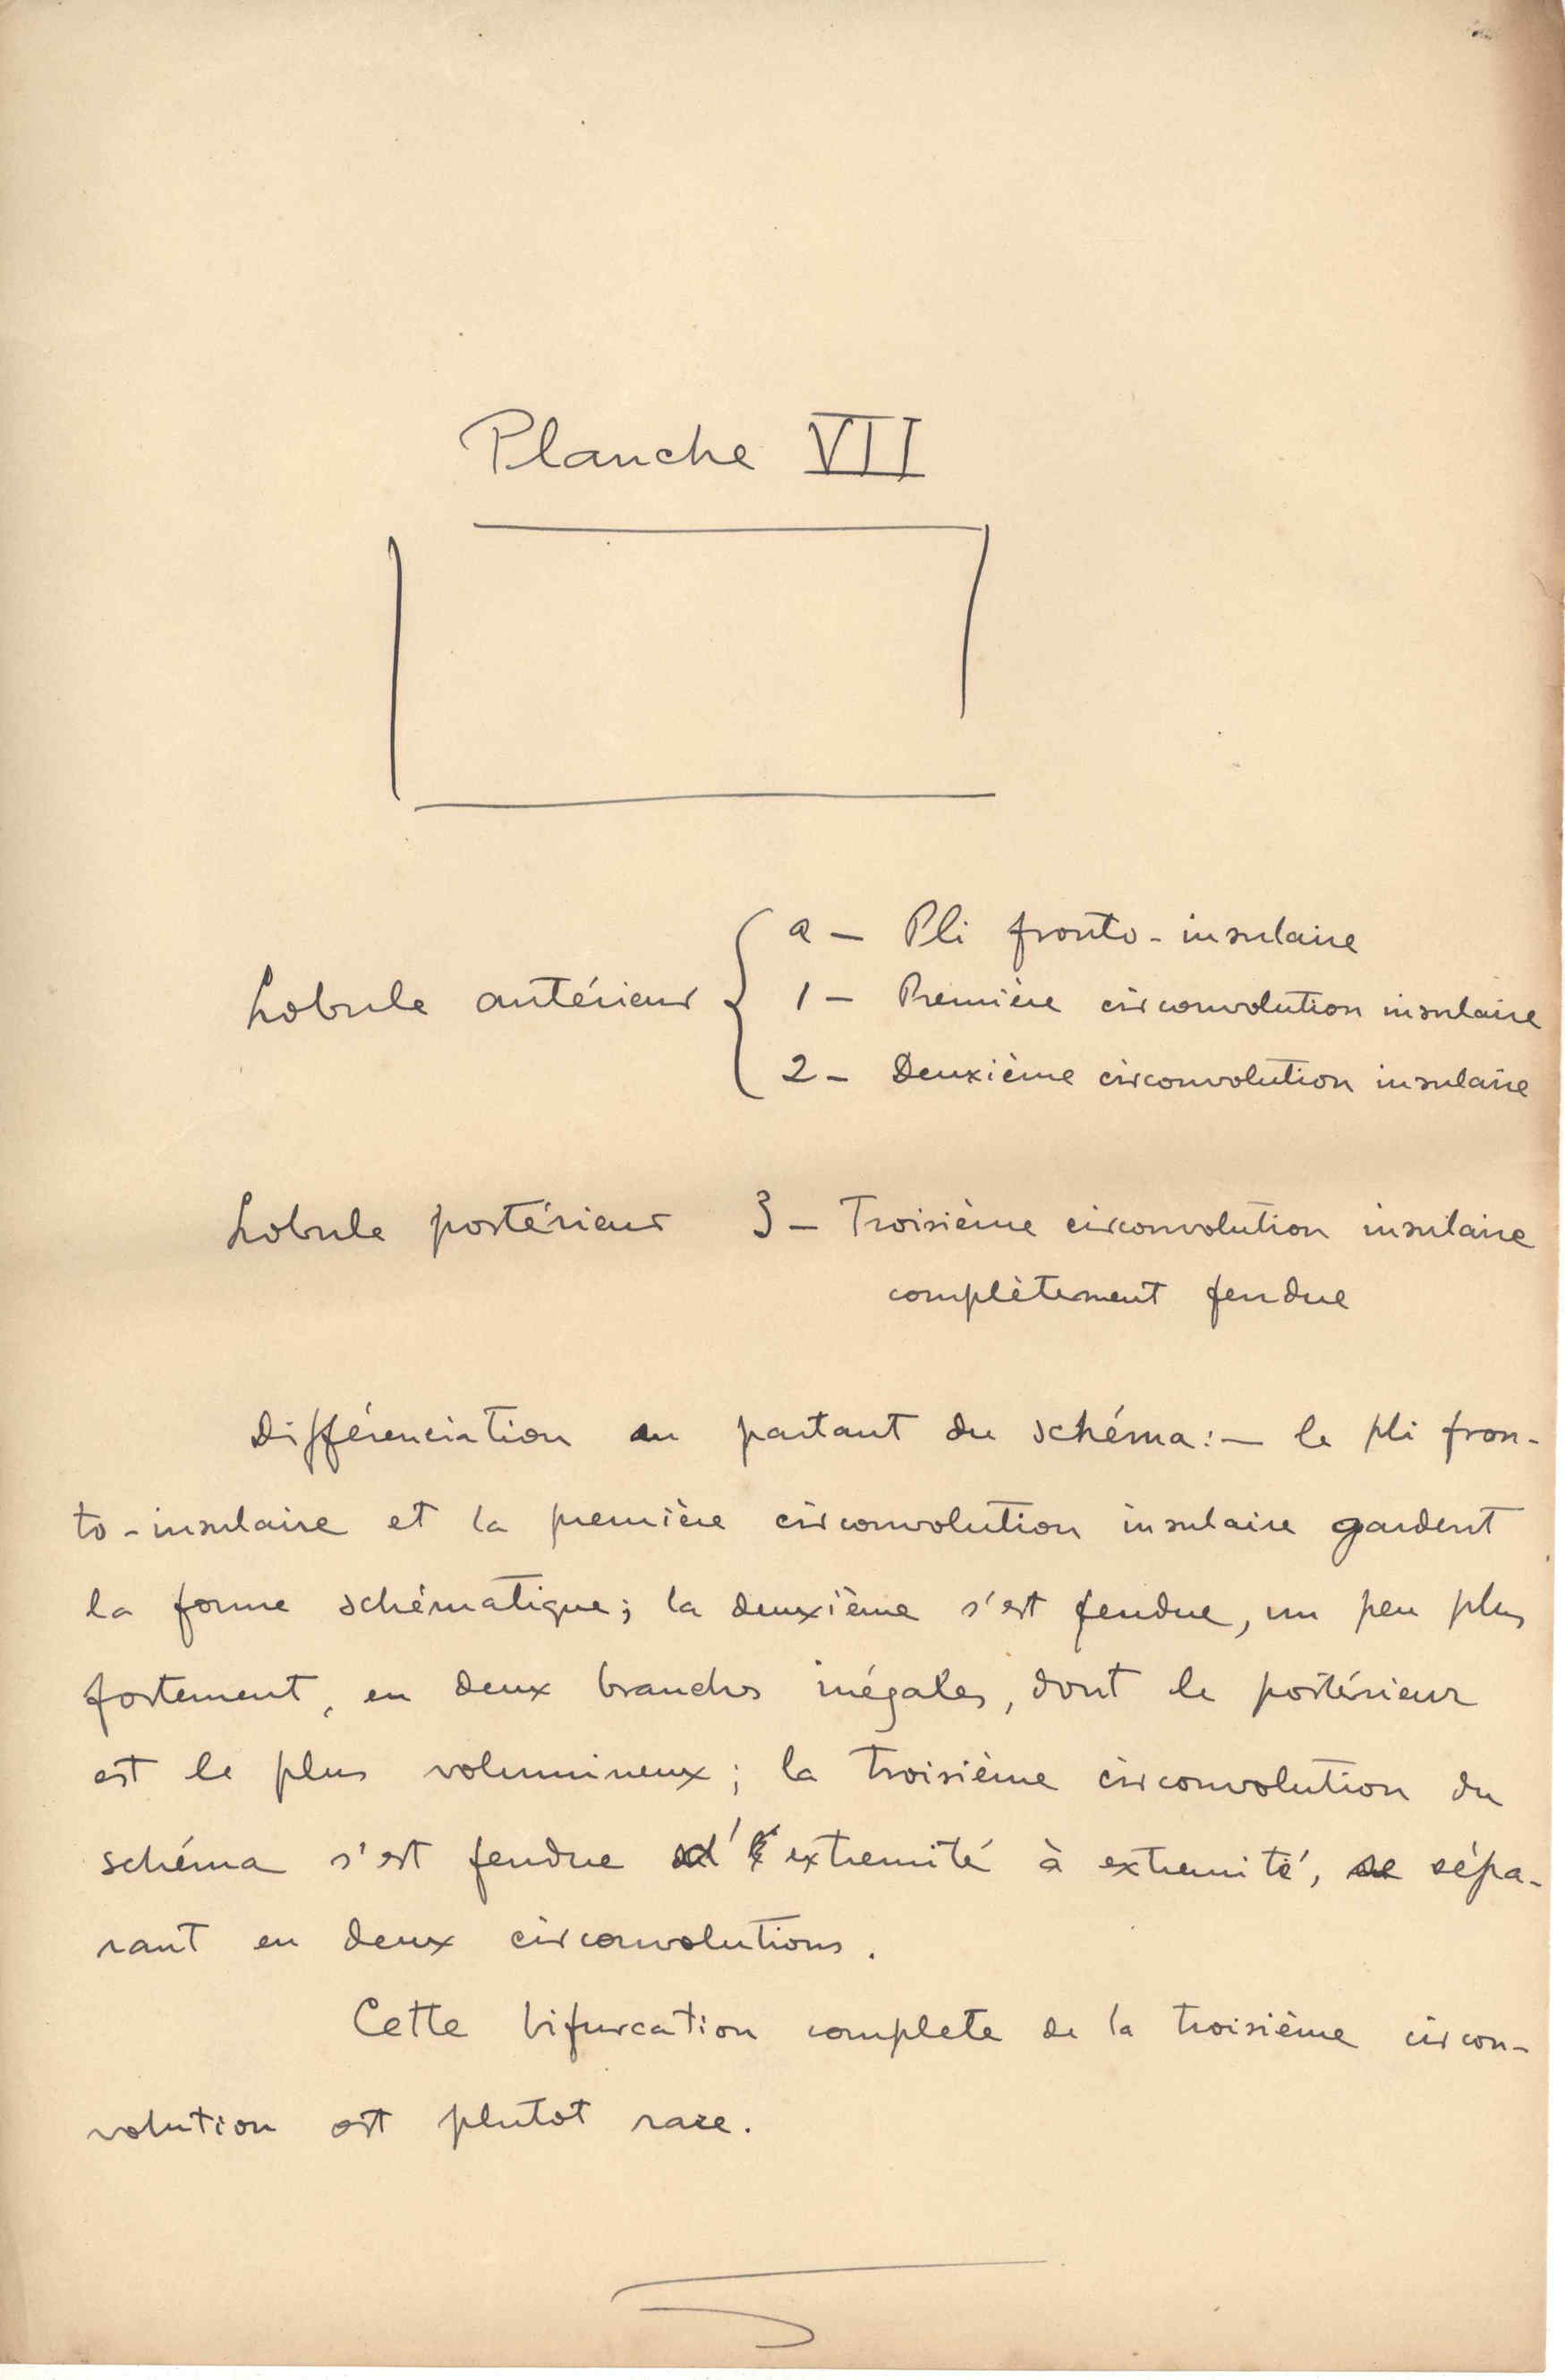 Planche VII
a - Pli fronto-insulaire
Lobule antérieur 1 - Première circonvolution insulaire
2 - Deuxième circonvolution insulaire
Lobule postérieur 3 - Troisième circonvolution insulaire
complètement fendue
Différenciation en partant du schéma: - le pli fron-
to-insulaire et la première circonvolution insulaire gardent
la forme schématique; la deuxième s'est fendue, un peu plus
fortement, en deux branches inégales, dont le postérieur
est le plus volumineux; la troisième circonvolution du
schéma s'est fendue d'extremité à extremité, se sépa-
rant en deux circonvolutions.
Cette bifurcation complete de la troisième circon-
volution est plutot rare.